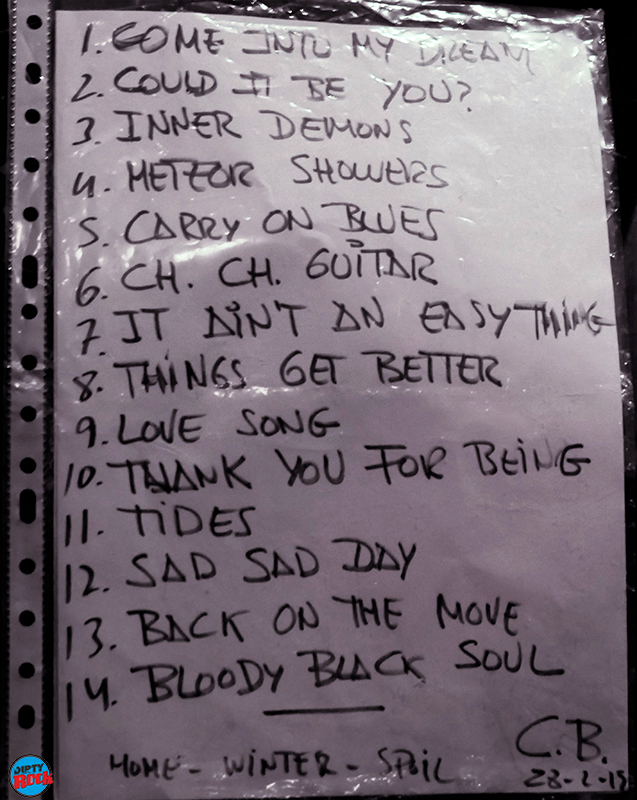 1. COME INTO MY DREAM
2. COULD IT BE YOU?
3. INNER DEMONS
4. METEOR SHOWERS
5. CARRY ON BLUES
6. CH. CH. GUITAR
7. IT AIN'T AN EASY THING
8. THINGS GET BETTER
9. LOVE SONG
10. THANK YOU FOR BEING
11. TIDES
12. SAD SAD DAY
13. BACK ON THE MOVE
14. BLOODY BLACK SOUL
HOME - WINTER - SPOIL
C.B.
28-2-15
DIRTY ROCK